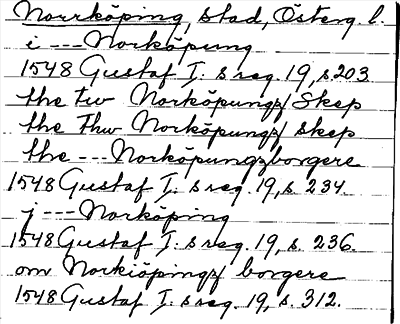 Norrköping, stad, Österg. l.
i --- Norköpung
1548 Gustaf I: s reg. 19, s. 203.
the tw Norköpungz/ Skep
the Thw Norköpungz/ skep
the --- Norköpungzborgere
1548 Gustaf I: s reg. 19, s. 234.
j --- Norköping
1548 Gustaf I: s reg. 19, s. 236.
om Norkiöpingz/ borgere
1548 Gustaf I: s reg. 19, s. 312.